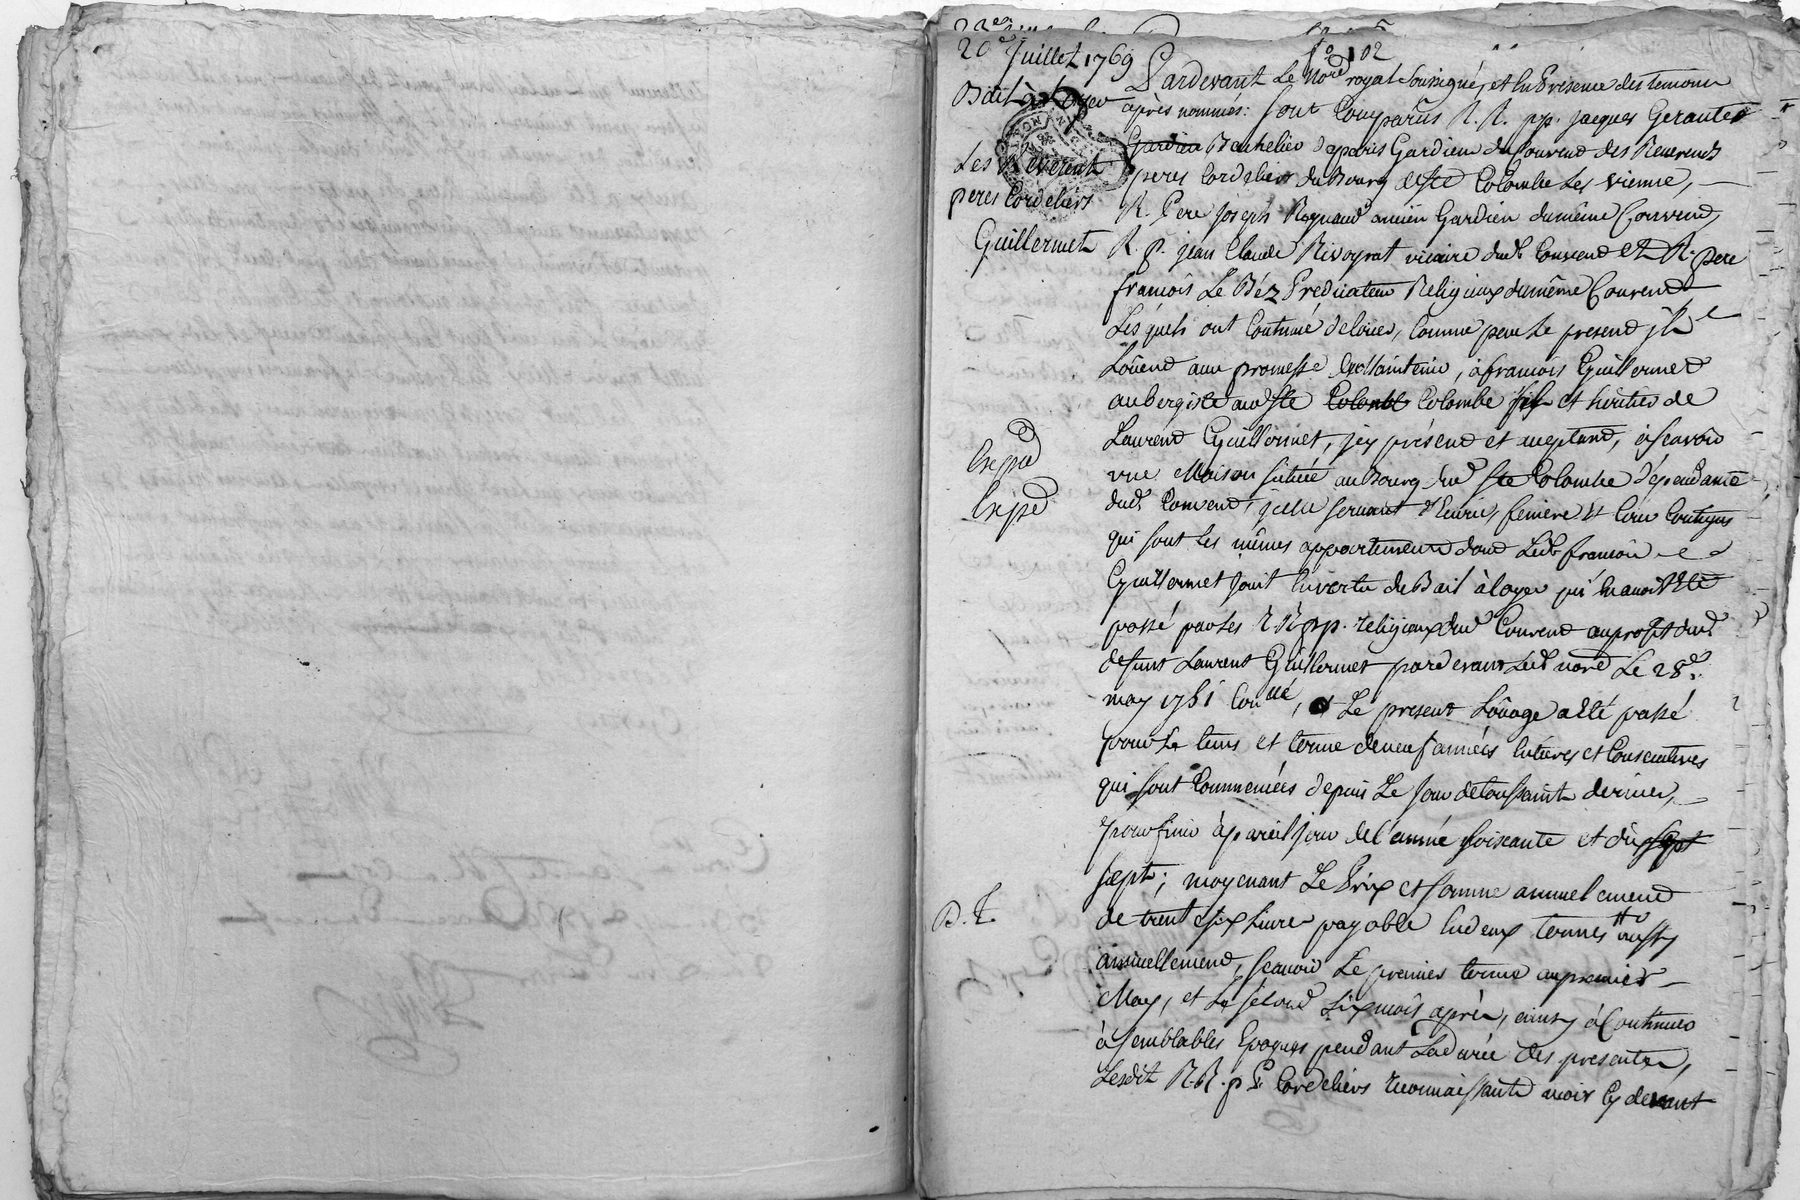 20e Juillet 1769
fo 102
Bail à Loyer
Les Reverent
peres Cordeliers
Guillermet
Pardevant Le nore royal soussigné, et en Présence des temoins
après nommés: sont Comparus R. R. pp. jacques
Gardien Bachelier de paris Gardien du Couvend des Reverends
peres Cordeliers du Bourg de Ste Colombe Les vienne,
R. Pere joseph Regnaud ancien Gardien du même Couvend,
R. p. jean Claude Rivoyrat vicaire dud Couvend et R. pere
francois Le Béz Predicateur Religieux du même Couvend
Lesquels ont Continué de louer, comme par Le present ils
Loüend avec promesse de Maintenir, à francois Guillermet
aubergiste aud Ste Colombe Colombe fils et héritier de
Laurend Guillermet, jcy présend et aceptand, à scavoir
Expé
Expé
vne Maison situeé au Bourg dud Ste Colombe dépendante
dud Couvend, jcelle servant d'Ecurie, feniere et Cour Contigus
qui sont les mêmes appartements dond Led francois
Guillermet jouit en vertu du Bail à loyer qui en avoit Eté
passé par les R R pp. religieux dud Couvend au profit dud
defunt Laurent Guillermet par devant Led nore Le 28e
may 1751 Conllé, et Le present Loüage a Eté passé
pour Le tems et terme de neuf années Entieres et Consecutives
qui sont Commencées depuis Le jour de toussaint dernier,
pour finir à pareil jour de l'année soixante et dix sept
sept; moyenant Le Prix et somme annuelemend
D. T.
de trent six Livre payable En deux termes aussy
annuellemend, scavoir Le premier terme au premier
May, et Le second six mois après, ainsy à Continuer
à semblables Epoques pendant La durée des presentes,
Lesdit R. R. p P. Cordeliers avoir Cy devant